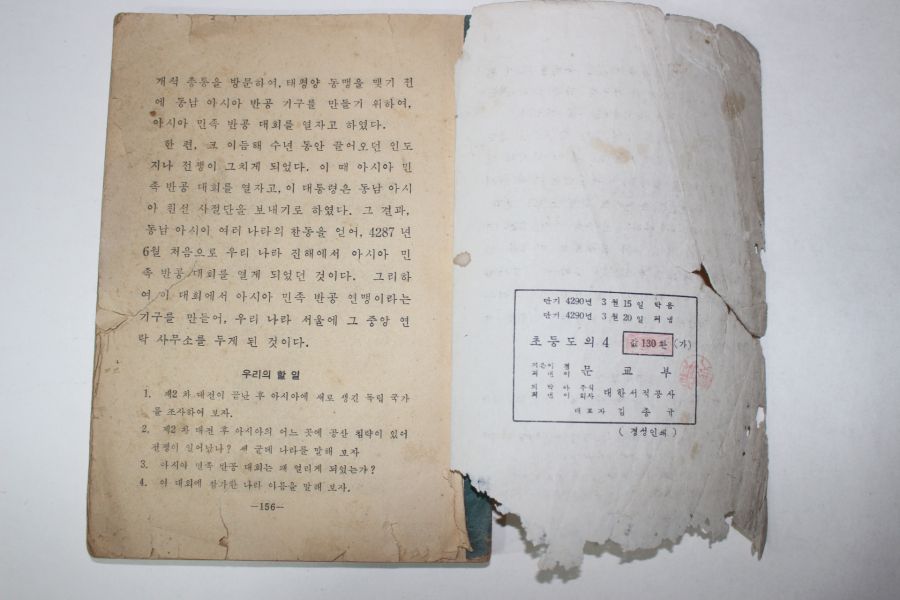 개석 총통을 방문하여, 태평양 동맹을 맺기 전
에 동남 아시아 반공 기구를 만들기 위하여,
아시아 민족 반공 대회를 열자고 하였다.
한 편, 그 이듬해 수년 동안 끌어오던 인도
지나 전쟁이 그치게 되었다. 이 때 아시아 민
족 반공 대회를 열자고, 이 대통령은 동남 아시
아 친선 사절단을 보내기로 하였다. 그 결과,
동남 아시아 여러 나라의 찬동을 얻어, 4287년
6월 처음으로 우리 나라 진해에서 아시아 민
족 반공 대회를 열게 되었던 것이다. 그리하
여 이 대회에서 아시아 민족 반공 연맹이라는
기구를 만들어, 우리 나라 서울에 그 중앙 연
락 사무소를 두게 된 것이다.
우리의 할 일
1. 제2차 대전이 끝난 후 아시아에 새로 생긴 독립 국가
를 조사하여 보자.
2. 제2차 대전 후 아시아의 어느 곳에 공산 침략이 있어
전쟁이 일어났나? 세 군데 나라를 말해 보자
3. 아시아 민족 반공 대회는 왜 열리게 되었는가?
4. 이 대회에 참가한 나라 이름을 말해 보자.
—156—
단기 4290년 3월 15일 박음
단기 4290년 3월 20일 펴냄
초등도의 4 값 130환 (가)
지은이 겸 펴낸이 문교부
박아 펴낸이 주식 회사 대한서적공사
대표자 김종규
(경성인쇄)